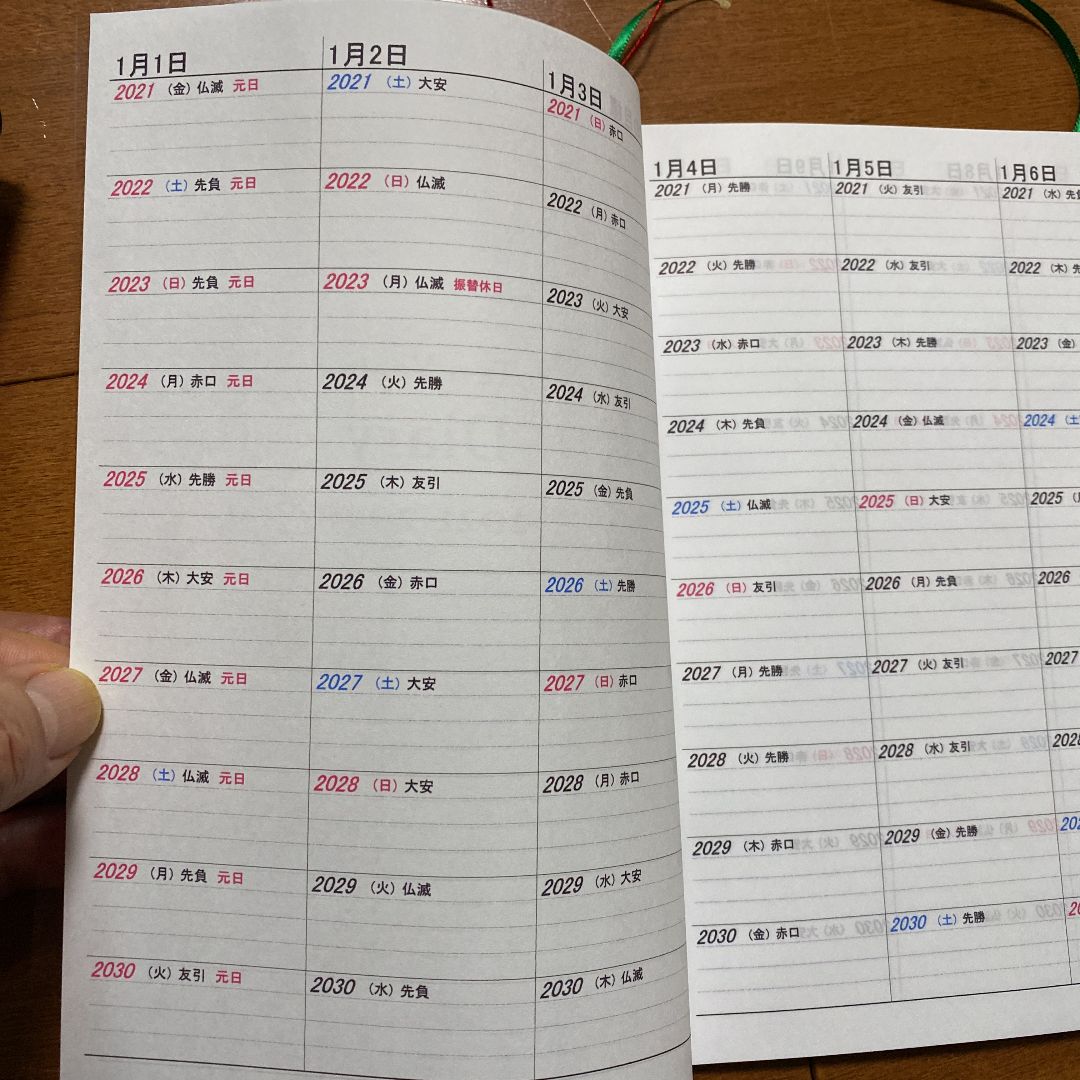 1月1日
2021 （金）仏滅 元日
2022 （土）先負 元日
2023 （日）先負 元日
2024 （月）赤口 元日
2025 （水）先勝 元日
2026 （木）大安 元日
2027 （金）仏滅 元日
2028 （土）仏滅 元日
2029 （月）先負 元日
2030 （火）友引 元日
1月2日
2021 （土）大安
2022 （日）仏滅
2023 （月）仏滅 振替休日
2024 （火）先勝
2025 （木）友引
2026 （金）赤口
2027 （土）大安
2028 （日）大安
2029 （火）仏滅
2030 （水）先負
1月3日
2021 （日）赤口
2022 （月）赤口
2023 （火）大安
2024 （水）友引
2025 （金）先負
2026 （土）先勝
2027 （日）赤口
2028 （月）赤口
2029 （水）大安
2030 （木）仏滅
1月4日
2021 （月）先勝
2022 （火）先勝
2023 （水）赤口
2024 （木）先負
2025 （土）仏滅
2026 （日）友引
2027 （月）先勝
2028 （火）先勝
2029 （木）赤口
2030 （金）赤口
1月5日
2021 （火）友引
2022 （水）友引
2023 （木）先勝
2024 （金）仏滅
2025 （日）大安
2026 （月）先負
2027 （火）友引
2028 （水）友引
2029 （金）先勝
2030 （土）先勝
1月6日
2021 （水）先
2022 （木）先
2023 （金）
2024 （土
2025
2026
2027